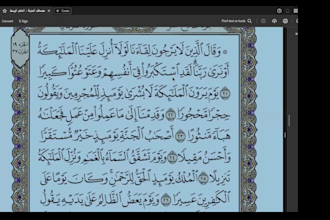 وَقَالَ ٱلَّذِينَ لَا يَرْجُونَ لِقَآءَنَا لَوْلَآ أُنزِلَ عَلَيْنَا ٱلْمَلَٰٓئِكَةُ
أَوْ نَرَىٰ رَبَّنَا لَقَدِ ٱسْتَكْبَرُوا۟ فِىٓ أَنفُسِهِمْ وَعَتَوْ عُتُوًّا كَبِيرًا
٢١ يَوْمَ يَرَوْنَ ٱلْمَلَٰٓئِكَةَ لَا بُشْرَىٰ يَوْمَئِذٍ لِّلْمُجْرِمِينَ وَيَقُولُونَ
حِجْرًا مَّحْجُورًا ٢٢ وَقَدِمْنَآ إِلَىٰ مَا عَمِلُوا۟ مِنْ عَمَلٍ فَجَعَلْنَٰهُ
هَبَآءً مَّنثُورًا ٢٣ أَصْحَٰبُ ٱلْجَنَّةِ يَوْمَئِذٍ خَيْرٌ مُّسْتَقَرًّا
وَأَحْسَنُ مَقِيلًا ٢٤ وَيَوْمَ تَشَقَّقُ ٱلسَّمَآءُ بِٱلْغَمَٰمِ وَنُزِّلَ ٱلْمَلَٰٓئِكَةُ
تَنزِيلًا ٢٥ ٱلْمُلْكُ يَوْمَئِذٍ ٱلْحَقُّ لِلرَّحْمَٰنِ وَكَانَ يَوْمًا عَلَى
ٱلْكَٰفِرِينَ عَسِيرًا ٢٦ وَيَوْمَ يَعَضُّ ٱلظَّالِمُ عَلَىٰ يَدَيْهِ يَقُولُ